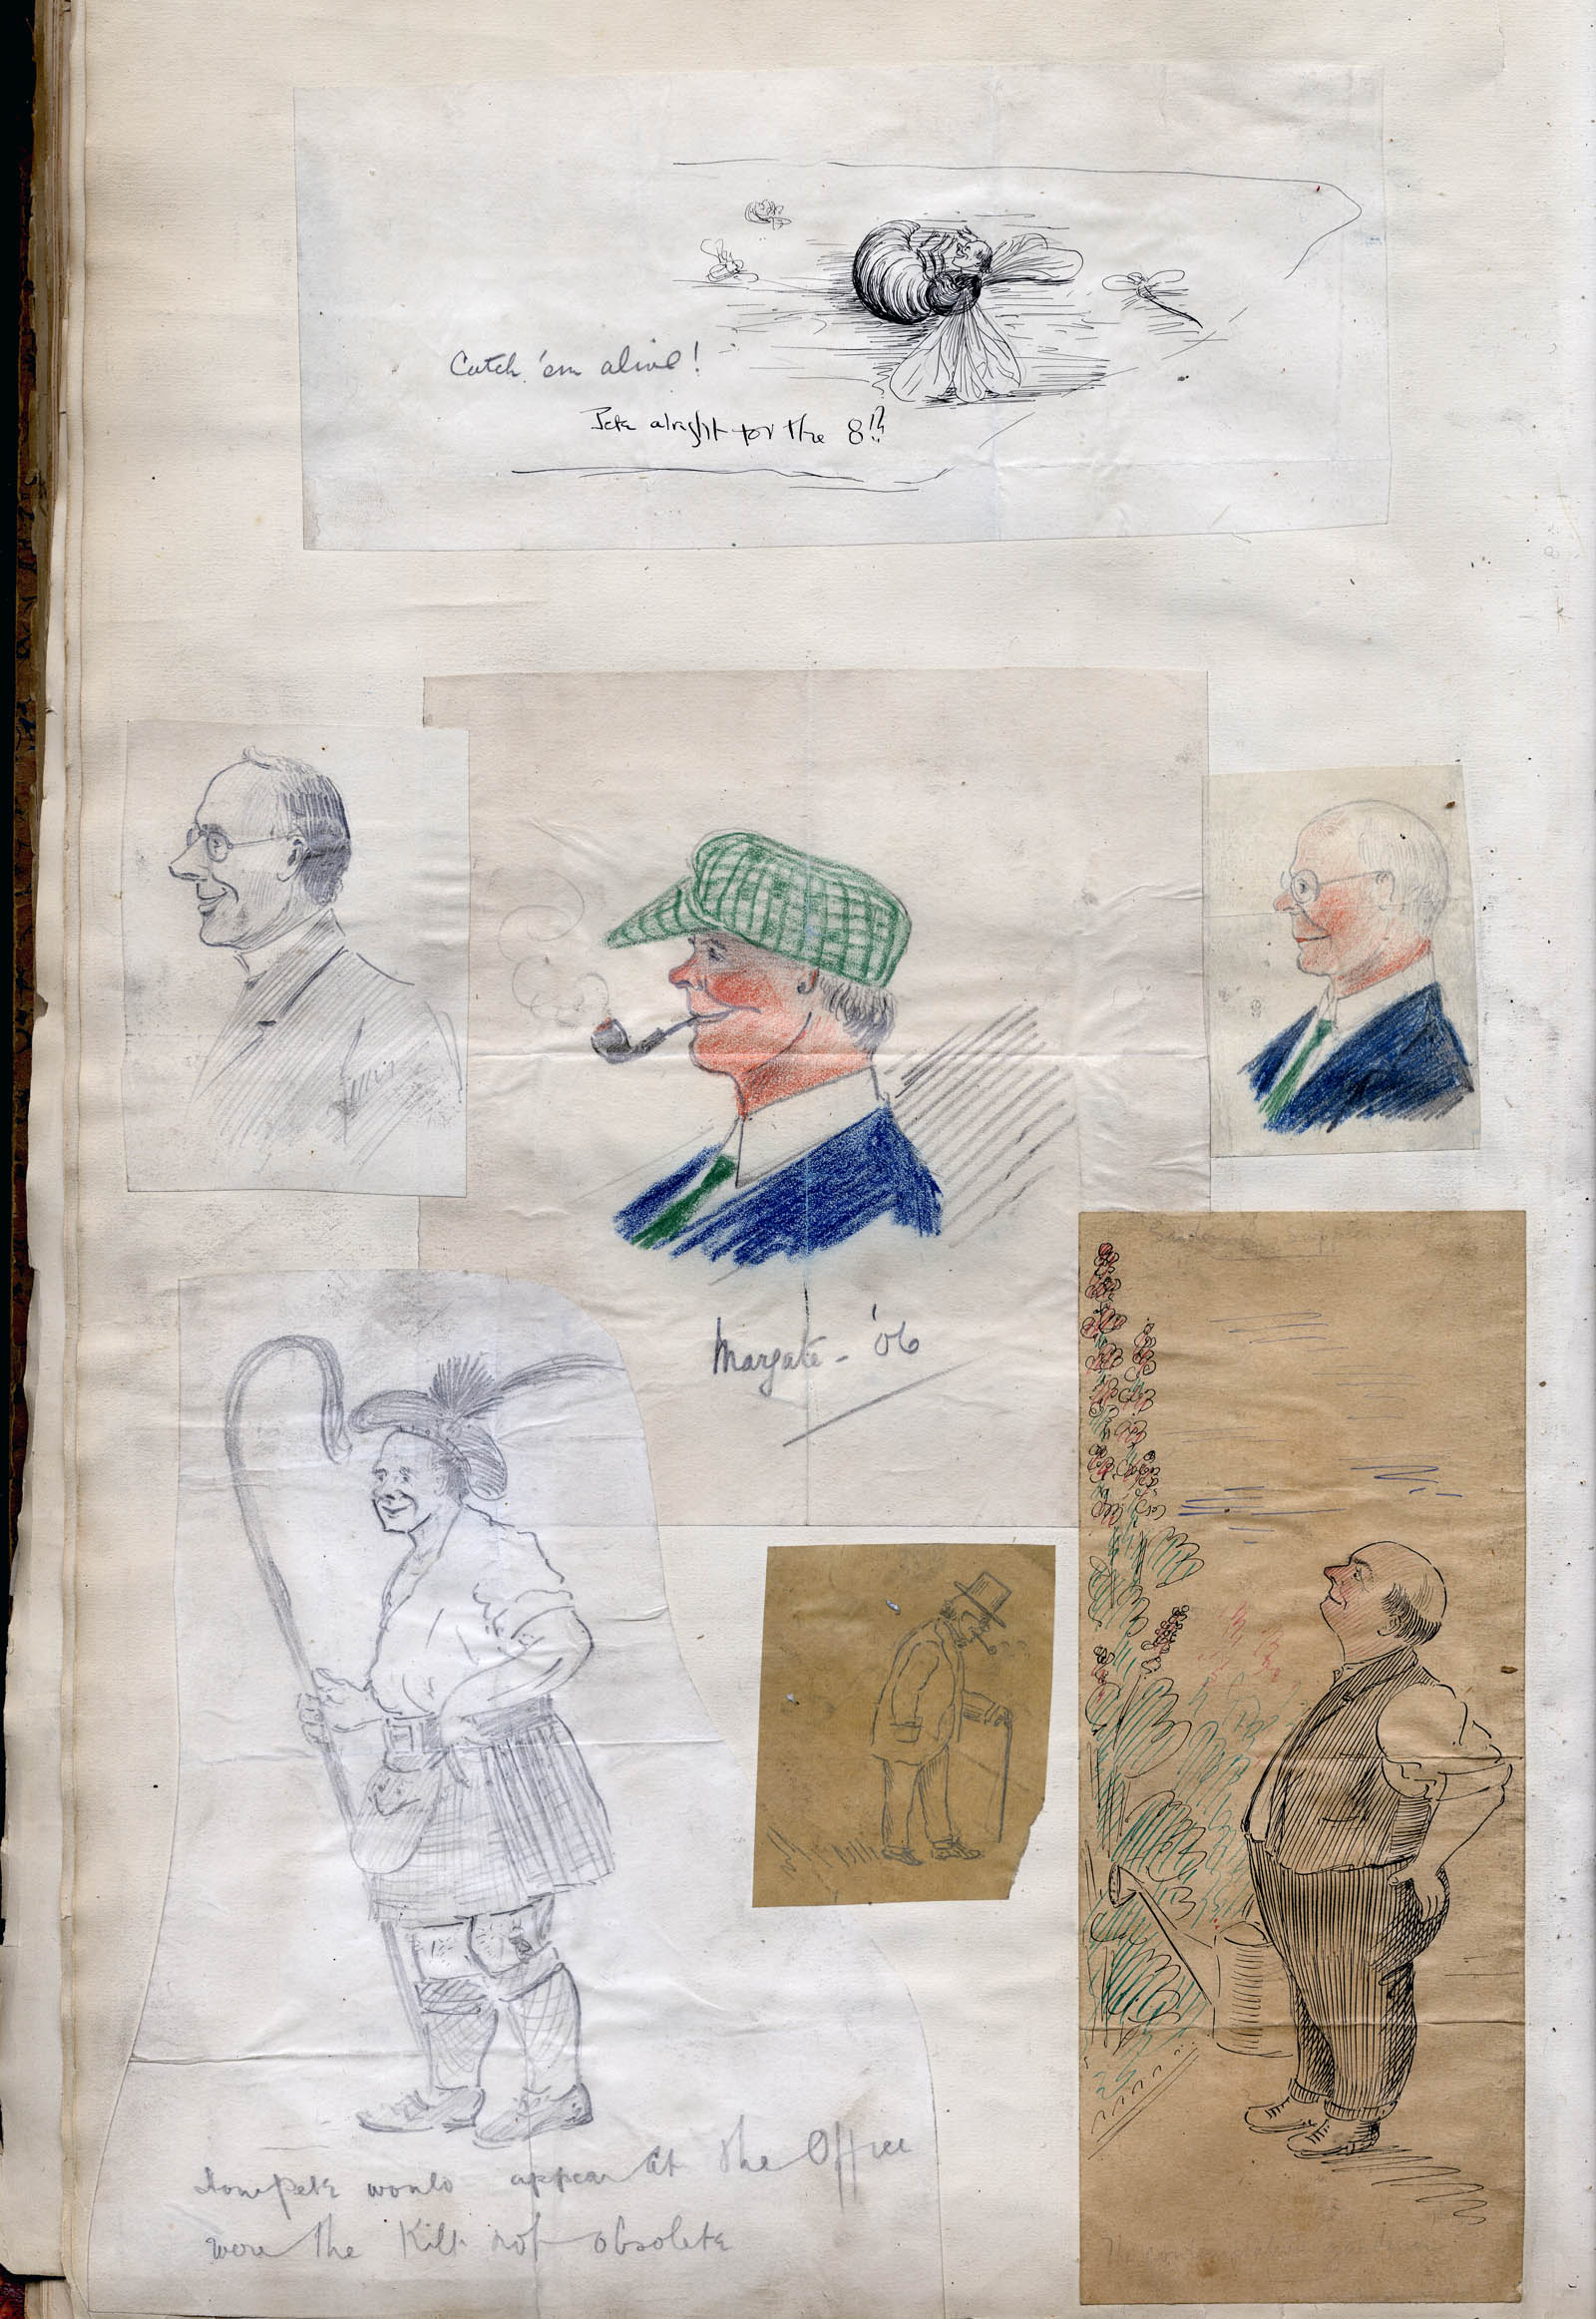 Catch 'em alive!
Pete alright for the 8!?
Margate - '06
How Pete would appear at the Office
were the Kilt not obsolete
The contemplative